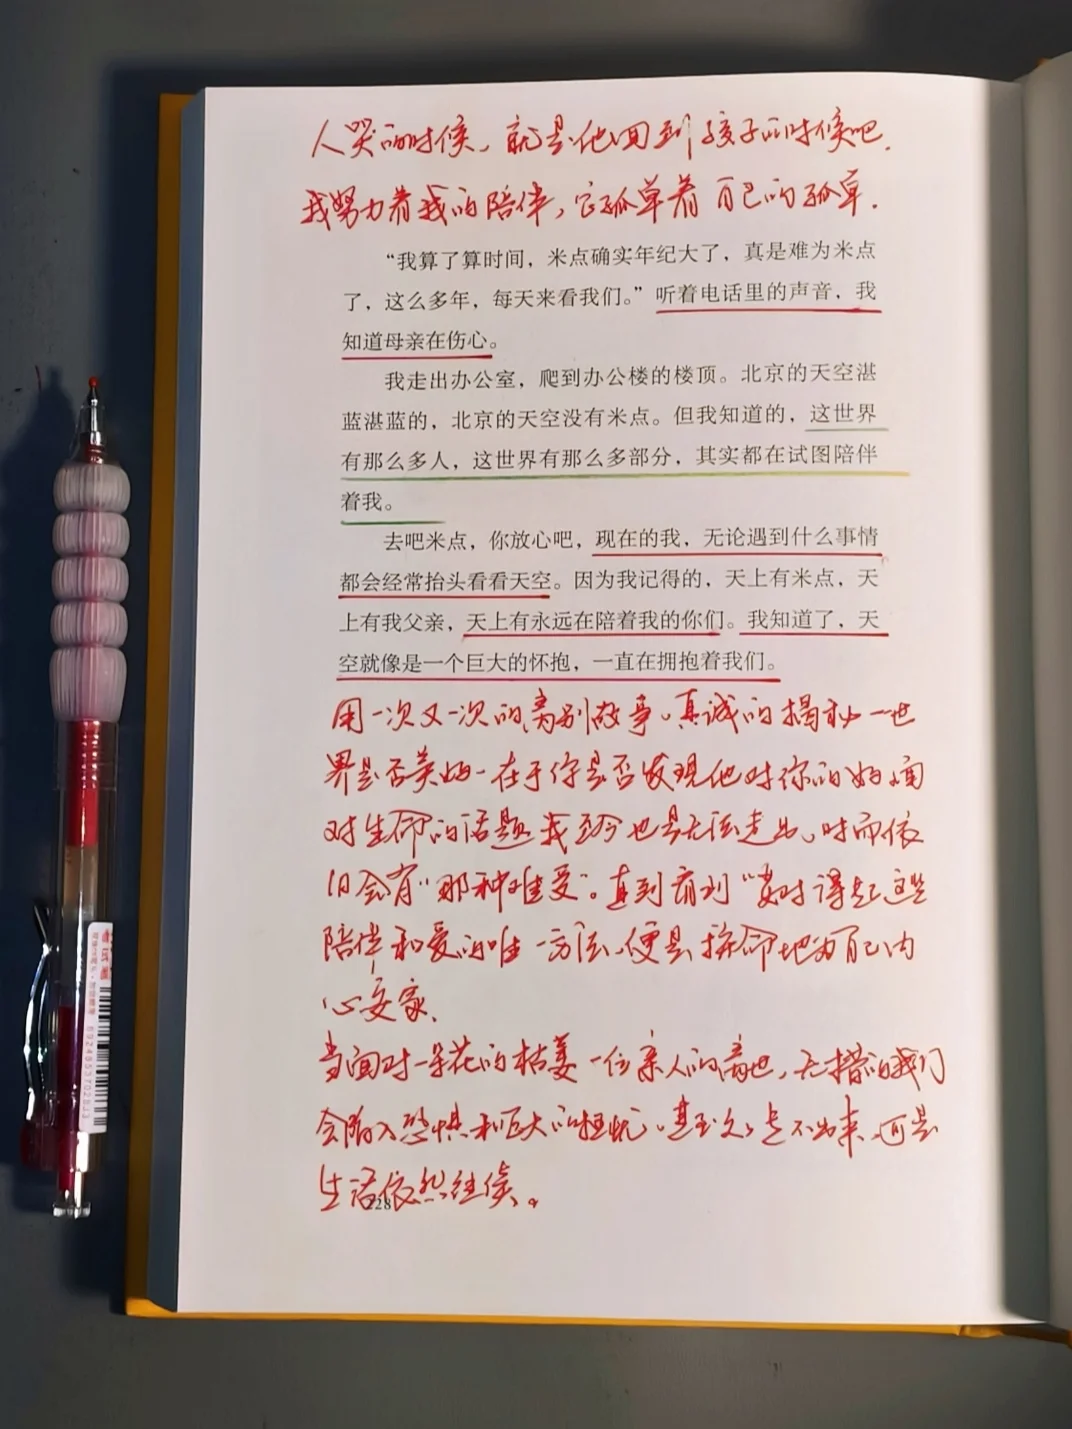 人哭的时候，就是他回到孩子的时候吧.
我努力着我的陪伴，它孤单着自己的孤单.
“我算了算时间，米点确实年纪大了，真是难为米点
了，这么多年，每天来看我们。”听着电话里的声音，我
知道母亲在伤心。
我走出办公室，爬到办公楼的楼顶。北京的天空湛
蓝湛蓝的，北京的天空没有米点。但我知道的，这世界
有那么多人，这世界有那么多部分，其实都在试图陪伴
着我。
去吧米点，你放心吧，现在的我，无论遇到什么事情
都会经常抬头看看天空。因为我记得的，天上有米点，天
上有我父亲，天上有永远在陪着我的你们。我知道了，天
空就像是一个巨大的怀抱，一直在拥抱着我们。
用一次又一次的离别故事。真诚的揭秘一世
界是否美好-在于你是否发现他对你的好.面
对生命的话题我至今也是无法走出、时而依
旧会有“那种难受”。直到看到“要对得起这些
陪伴和爱的唯一方法、便是拚命地为自己内
心安家、
当面对一朵花的枯萎一位亲人的离世，无措的我们
会陷入恐惧和巨大的担忧。甚至久久走不出来、可是
生活依然继续。
228